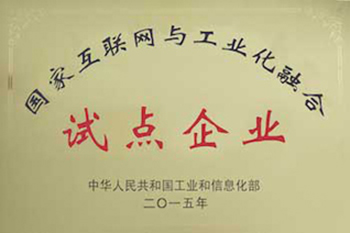 国家互联网与工业化融合
试点企业
中华人民共和国工业和信息化部
二〇一五年